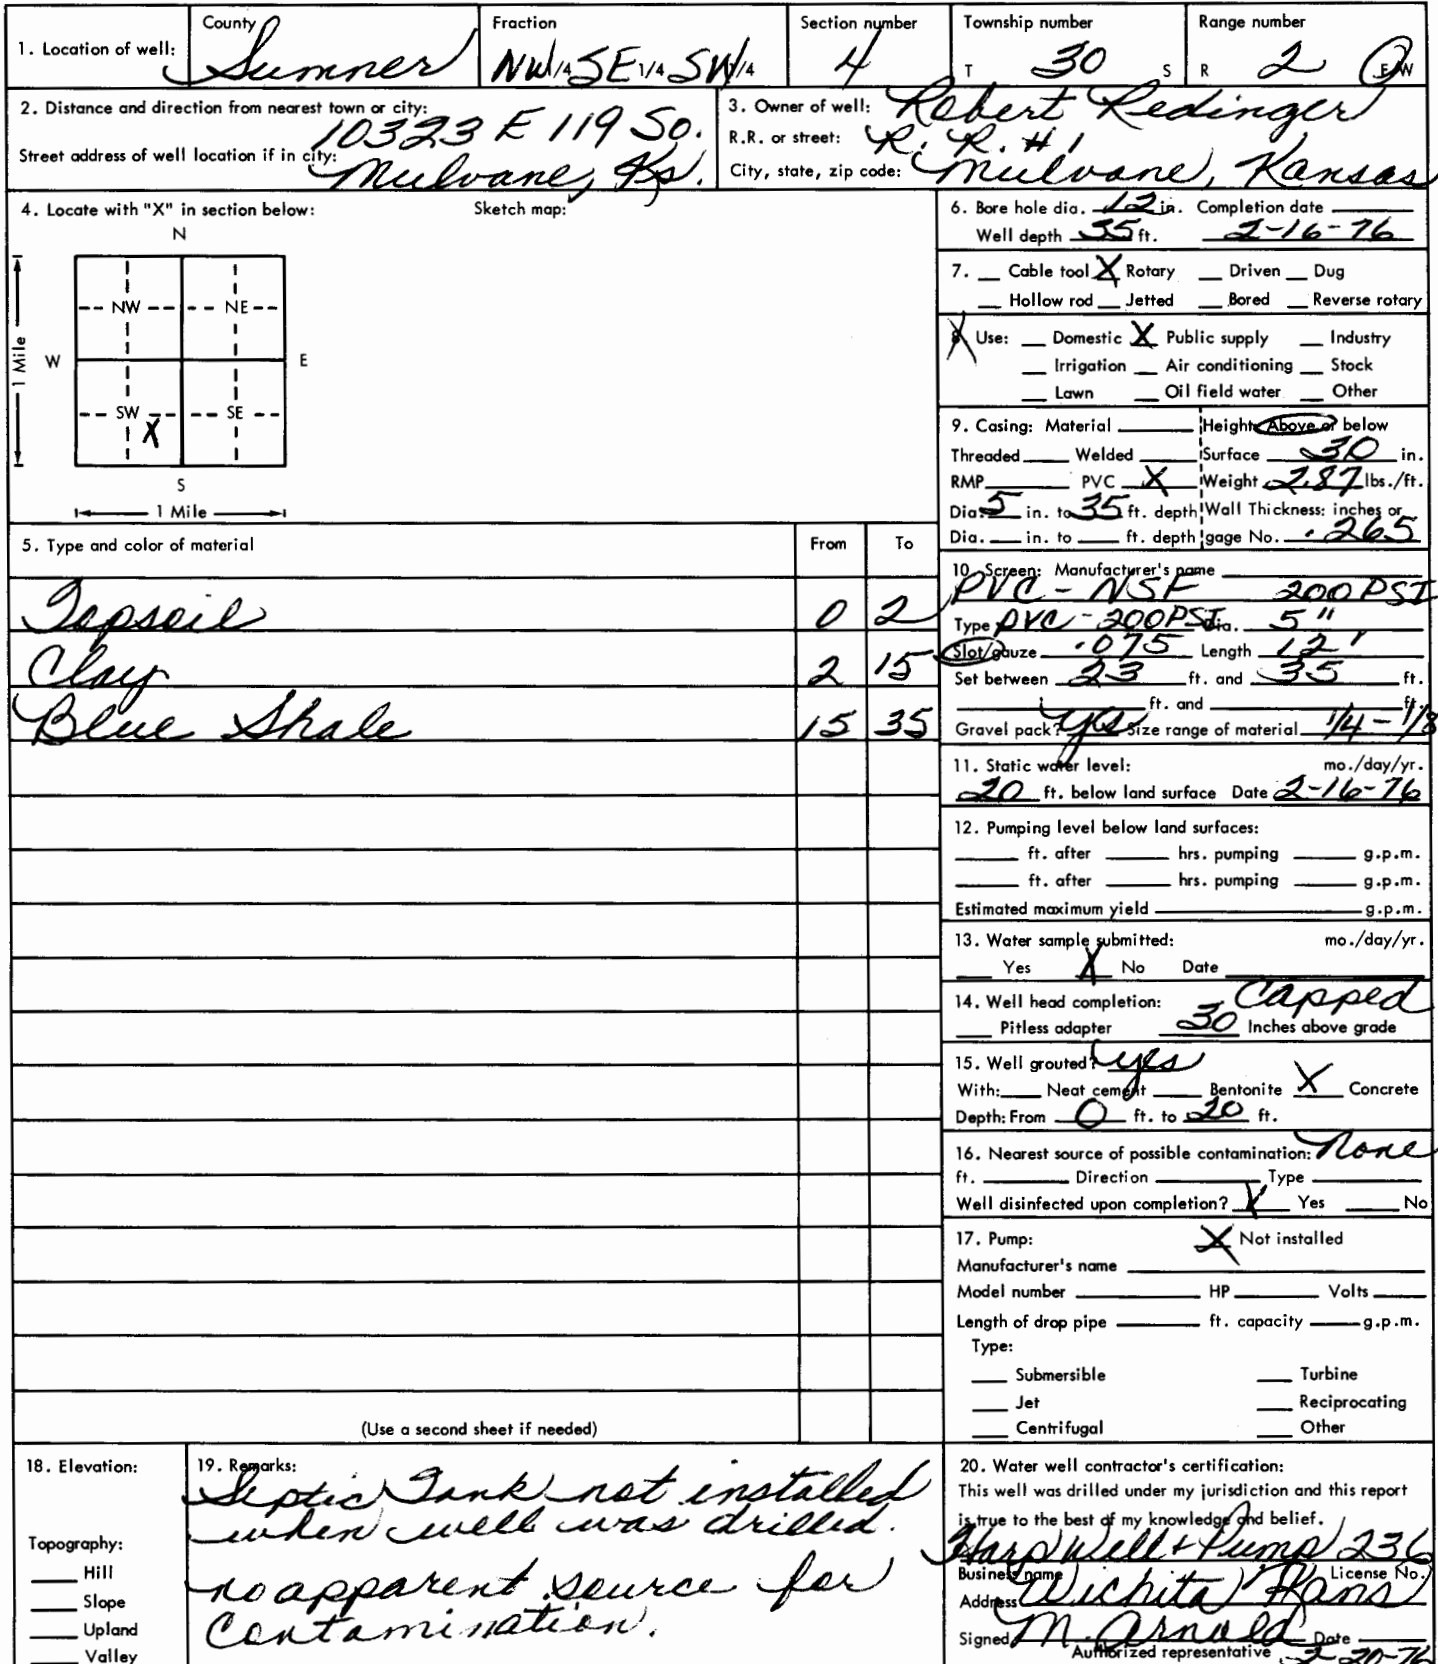 1. Location of well: County Sumner Fraction NW 1/4 SE 1/4 SW 1/4 Section number 4 Township number T 30 S Range number R 2 E/W
2. Distance and direction from nearest town or city:
10323 E 119 So.
Street address of well location if in city:
Mulvane, Ks.
3. Owner of well: Robert Redinger
R.R. or street: R. R. #1
City, state, zip code: Mulvane, Kansas
4. Locate with "X" in section below:
Sketch map:
N
NW NE
W E
1 Mile
SW SE
X
S
1 Mile
5. Type and color of material From To
Topsoil 0 2
Clay 2 15
Blue Shale 15 35
(Use a second sheet if needed)
6. Bore hole dia. 12 in. Completion date
Well depth 35 ft. 2-16-76
7. Cable tool X Rotary Driven Dug
Hollow rod Jetted Bored Reverse rotary
8. X Use: Domestic X Public supply Industry
Irrigation Air conditioning Stock
Lawn Oil field water Other
9. Casing: Material Height: Above or below
Threaded Welded Surface 30 in.
RMP PVC X Weight 2.87 lbs./ft.
Dia. 5 in. to 35 ft. depth Wall Thickness: inches or
Dia. in. to ft. depth gage No. .265
10. Screen: Manufacturer's name
PVC - NSF 200 PSI
Type PVC - 200 PSI Dia. 5"
Slot/gauze .075 Length 12'
Set between 23 ft. and 35 ft.
ft. and ft.
Gravel pack? yes Size range of material 1/4 - 1/8
11. Static water level: mo./day/yr.
20 ft. below land surface Date 2-16-76
12. Pumping level below land surfaces:
ft. after hrs. pumping g.p.m.
ft. after hrs. pumping g.p.m.
Estimated maximum yield g.p.m.
13. Water sample submitted: mo./day/yr.
Yes X No Date
14. Well head completion: Capped
Pitless adapter 30 Inches above grade
15. Well grouted? yes
With: Neat cement Bentonite X Concrete
Depth: From 0 ft. to 20 ft.
16. Nearest source of possible contamination: None
ft. Direction Type
Well disinfected upon completion? X Yes No
17. Pump: X Not installed
Manufacturer's name
Model number HP Volts
Length of drop pipe ft. capacity g.p.m.
Type:
Submersible Turbine
Jet Reciprocating
Centrifugal Other
18. Elevation:
Topography:
Hill
Slope
Upland
Valley
19. Remarks:
Septic Tank not installed
when well was drilled.
no apparent source for
Contamination.
20. Water well contractor's certification:
This well was drilled under my jurisdiction and this report
is true to the best of my knowledge and belief.
Harp Well + Pump 236
Business name License No.
Address Wichita Kans
Signed M. Arnold Date 2-20-76
Authorized representative